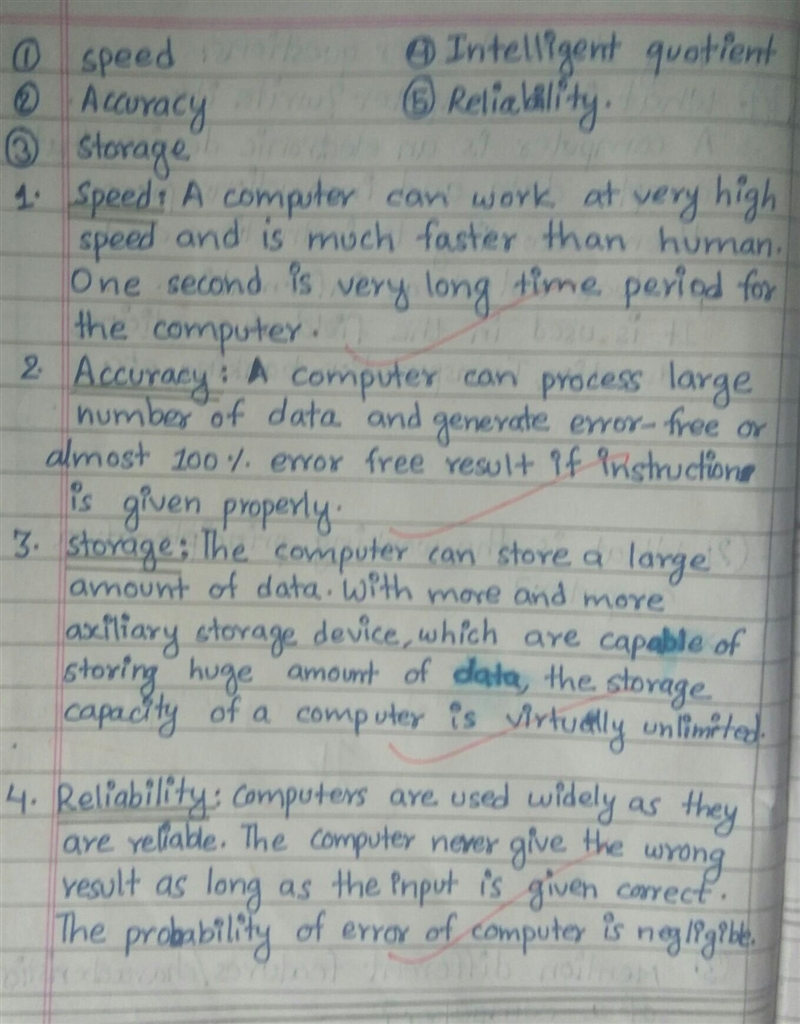 ① speed ④ Intelligent quotient
② Accuracy ⑤ Reliability.
③ storage
1. Speed: A computer can work at very high
speed and is much faster than human.
One second is very long time period for
the computer.
2. Accuracy: A computer can process large
number of data and generate error-free or
almost 100% error free result if instructions
is given properly.
3. storage: The computer can store a large
amount of data. With more and more
axiliary storage device, which are capable of
storing huge amount of data, the storage
capacity of a computer is virtually unlimited.
4. Reliability: Computers are used widely as they
are reliable. The computer never give the wrong
result as long as the input is given correct.
The probability of error of computer is negligible.